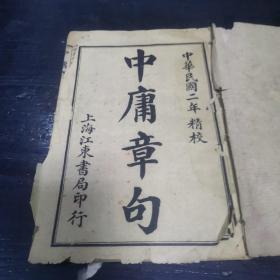 中華民國二年精校
中庸章句
上海江東書局印行